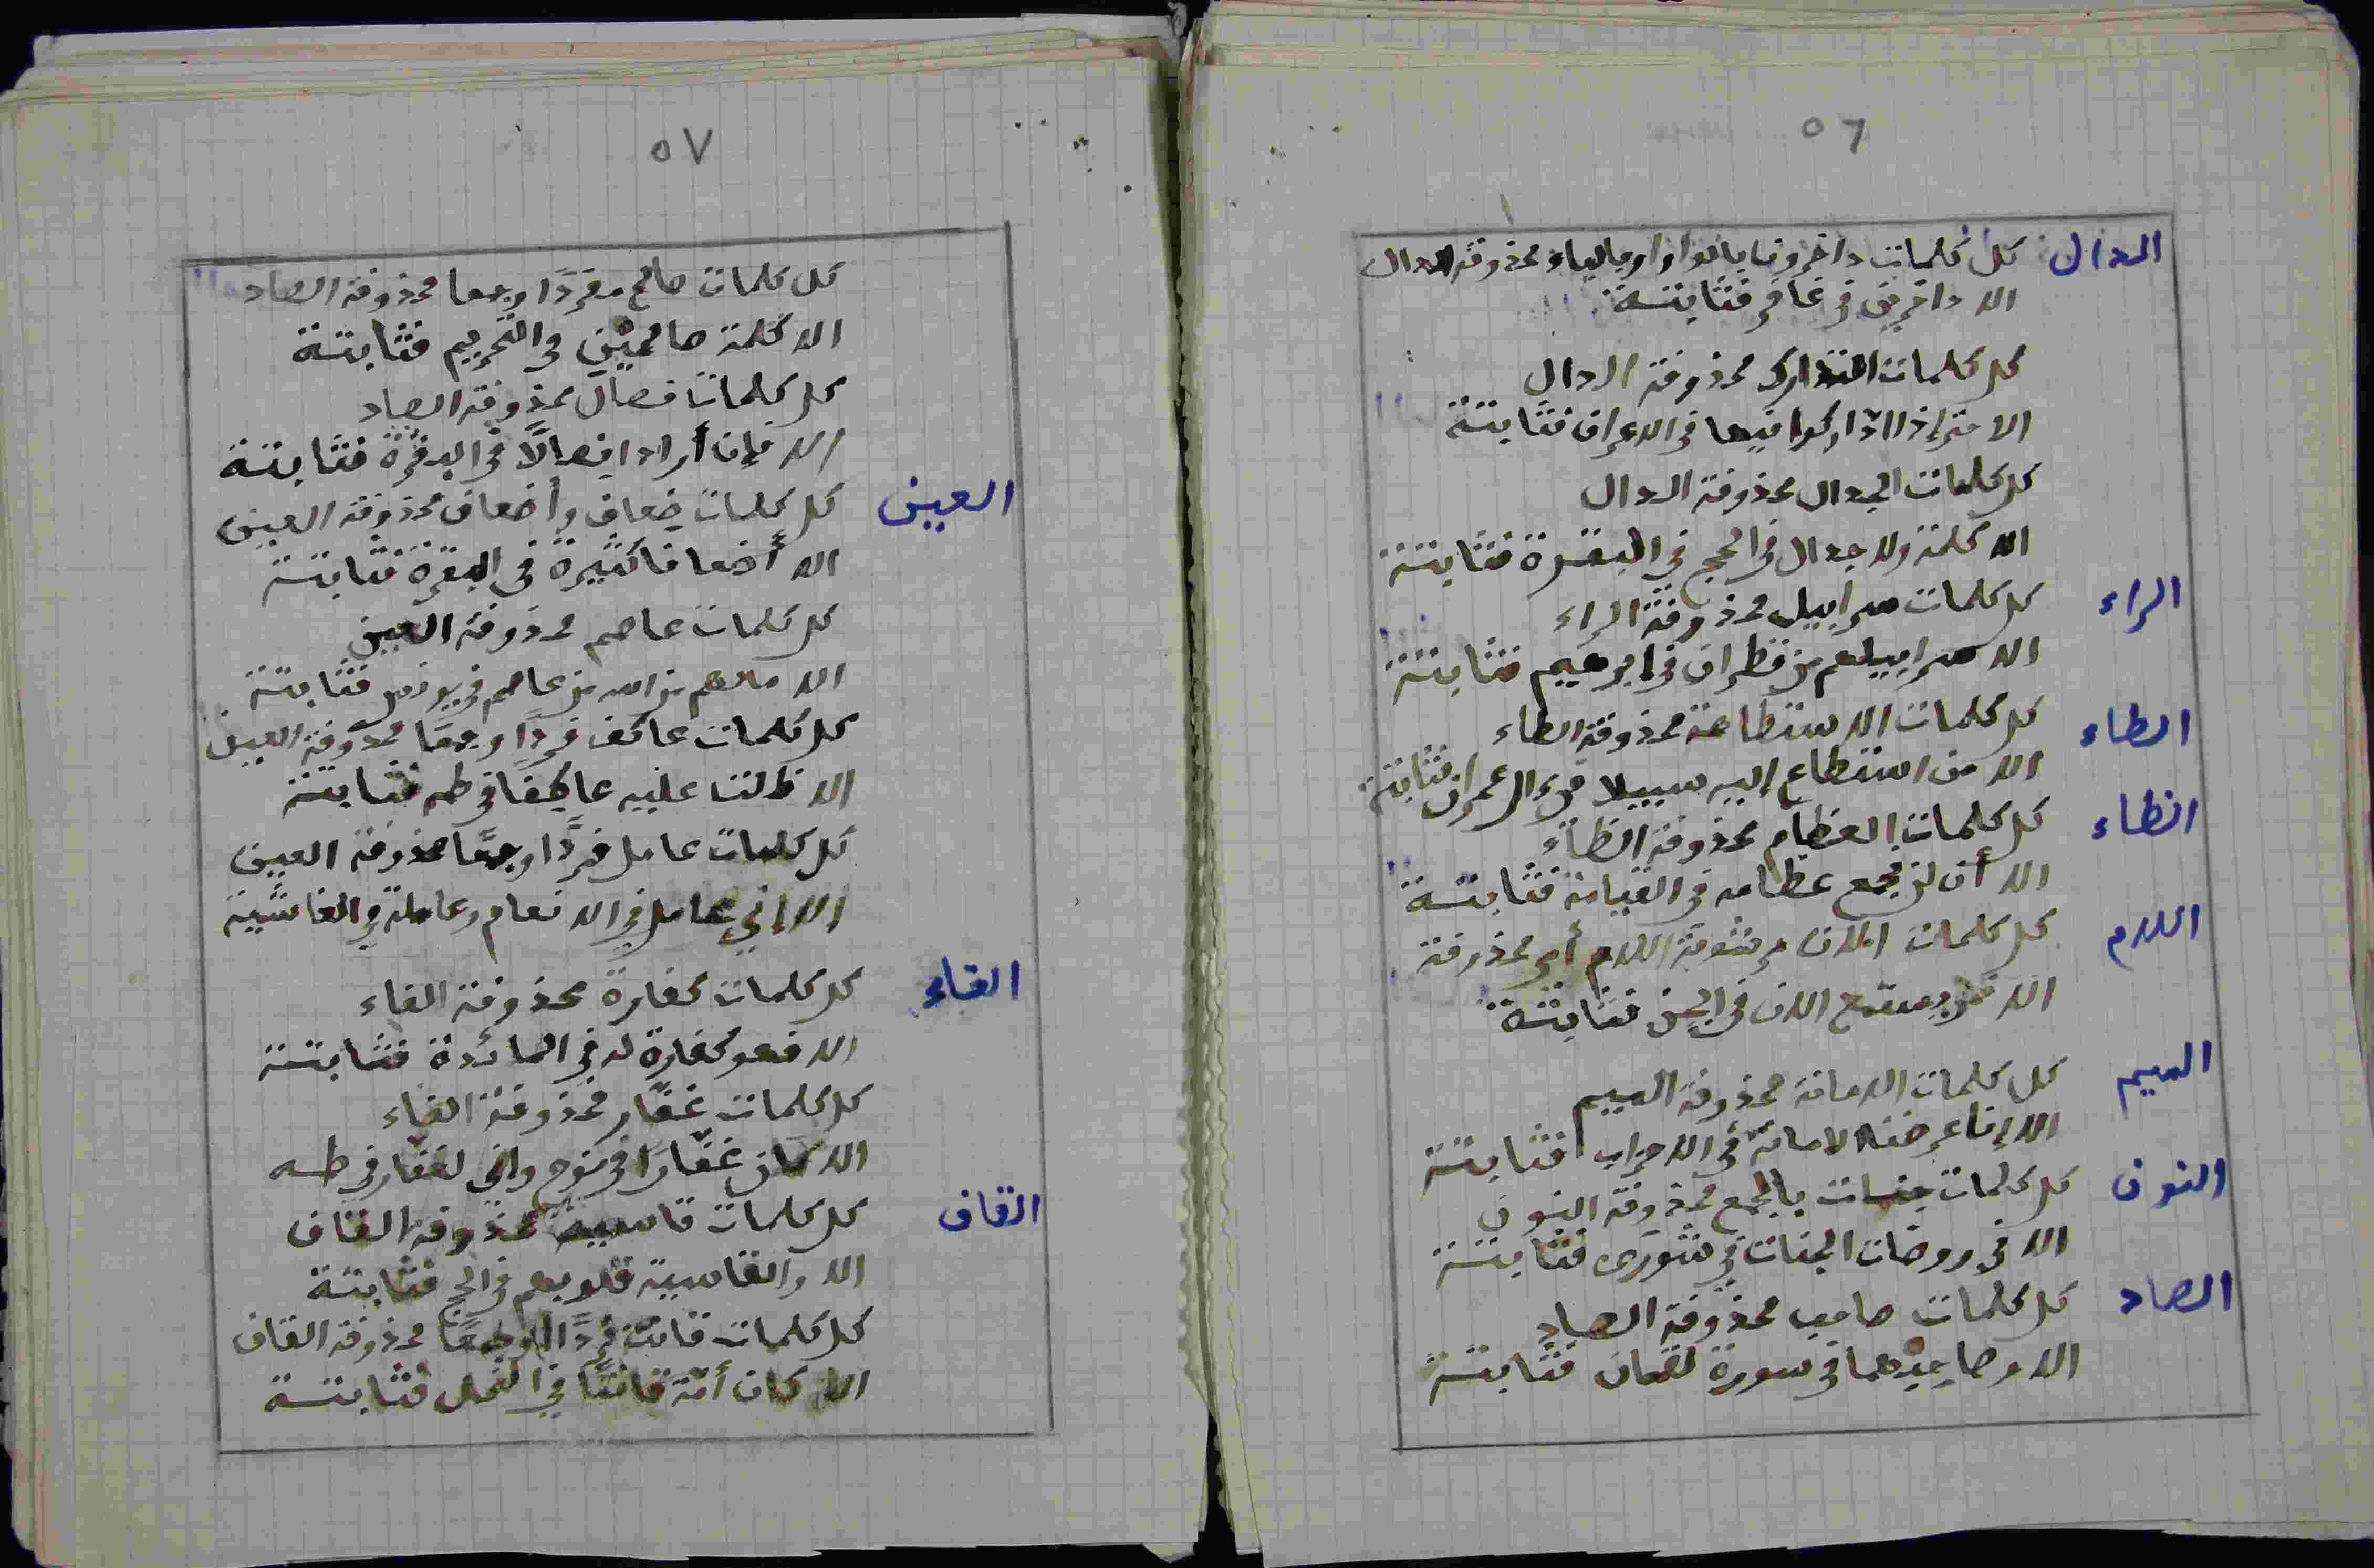 ٥٦
الدال كل كلمات داخرون بالواو او بالياء محذوفة الدال
الا داخرين في غافر فثابتة
كل كلمات التدارك محذوفة الدال
الا حتى إذا ادّاركوا فيها في الاعراف فثابتة
كل كلمات الجدال محذوفة الدال
الا كلمة ولا جدال في الحج في البقرة فثابتة
الراء كل كلمات سرابيل محذوفة الراء
الا سرابيلهم من قطران في ابرهيم فثابتة
الطاء كل كلمات الاستطاعة محذوفة الطاء
الا من استطاع إليه سبيلا في ءال عمران فثابتة
الظاء كل كلمات العظام محذوفة الظاء
الا أن لن نجمع عظامه في القيامة فثابتة
اللام كل كلمات الان مرشوقة اللام أي محذوفة
الا فمن يستمع الان في الجن فثابتة
الميم كل كلمات الامانة محذوفة الميم
الا إنا عرضنا الامانة في الاحزاب فثابتة
النون كل كلمات جنات بالجمع محذوفة النون
الا في روضات الجنات في شورى فثابتة
الصاد كل كلمات صاحب محذوفة الصاد
الا وصاحبهما في سورة لقمان فثابتة
٥٧
كل كلمات صالح مفردًا وجمعا محذوفة الصاد
الا كلمة صالحين في التحريم فثابتة
كل كلمات فصال محذوفة الصاد
الا فإن أرادا فصالًا في البقرة فثابتة
العين كل كلمات ضعاف وأضعاف محذوفة العين
الا أضعافا كثيرة في البقرة فثابتة
كل كلمات عاصم محذوفة العين
الا مالهم من الله من عاصم في يونس فثابتة
كل كلمات عاكف فردًا وجمعًا محذوفة العين
الا ظلت عليه عاكفًا في طه فثابتة
كل كلمات عامل فردًا وجمعًا محذوفة العين
الا إني عامل في الانعام وعاملة في الغاشية
الفاء كل كلمات كفارة محذوفة الفاء
الا فهو كفارة له في المائدة فثابتة
كل كلمات غفّار محذوفة الفاء
الا كان غفّارًا في نوح وإني لغفّار في طه
القاف كل كلمات قاسية محذوفة القاف
الا والقاسية قلوبهم في الحج فثابتة
كل كلمات قانت فردًا او جمعًا محذوفة القاف
الا كان أمّة قانتًا في النحل فثابتة